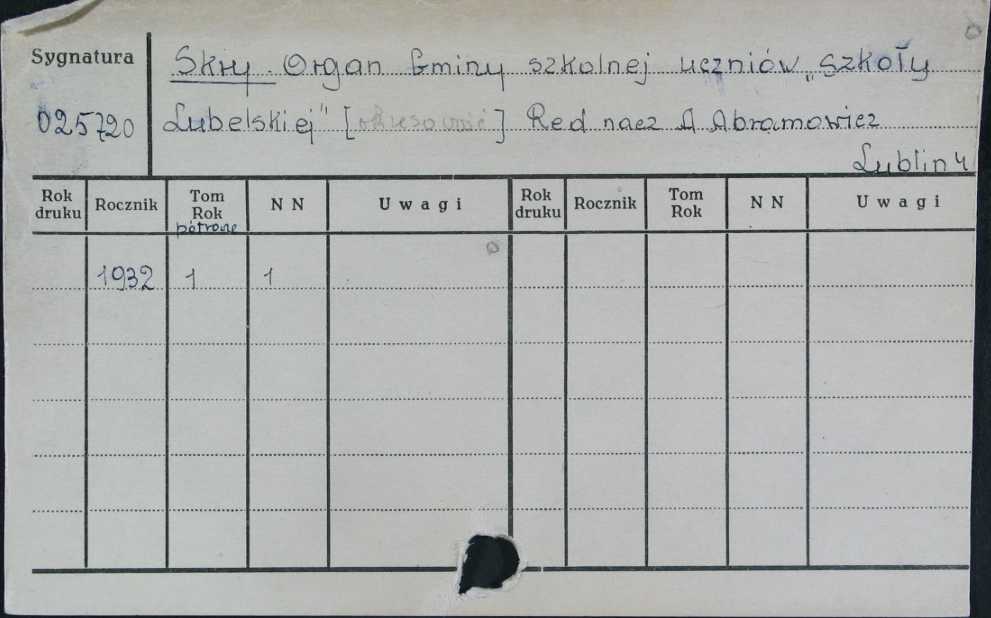 Sygnatura
Skry. Organ Gminy szkolnej uczniów „Szkoły
025720
Lubelskiej" [ ] Red nacz A Abramowicz
Lublin 4
Rok druku Rocznik Tom Rok N N Uwagi Rok druku Rocznik Tom Rok N N Uwagi
półrocze
1932 1 1